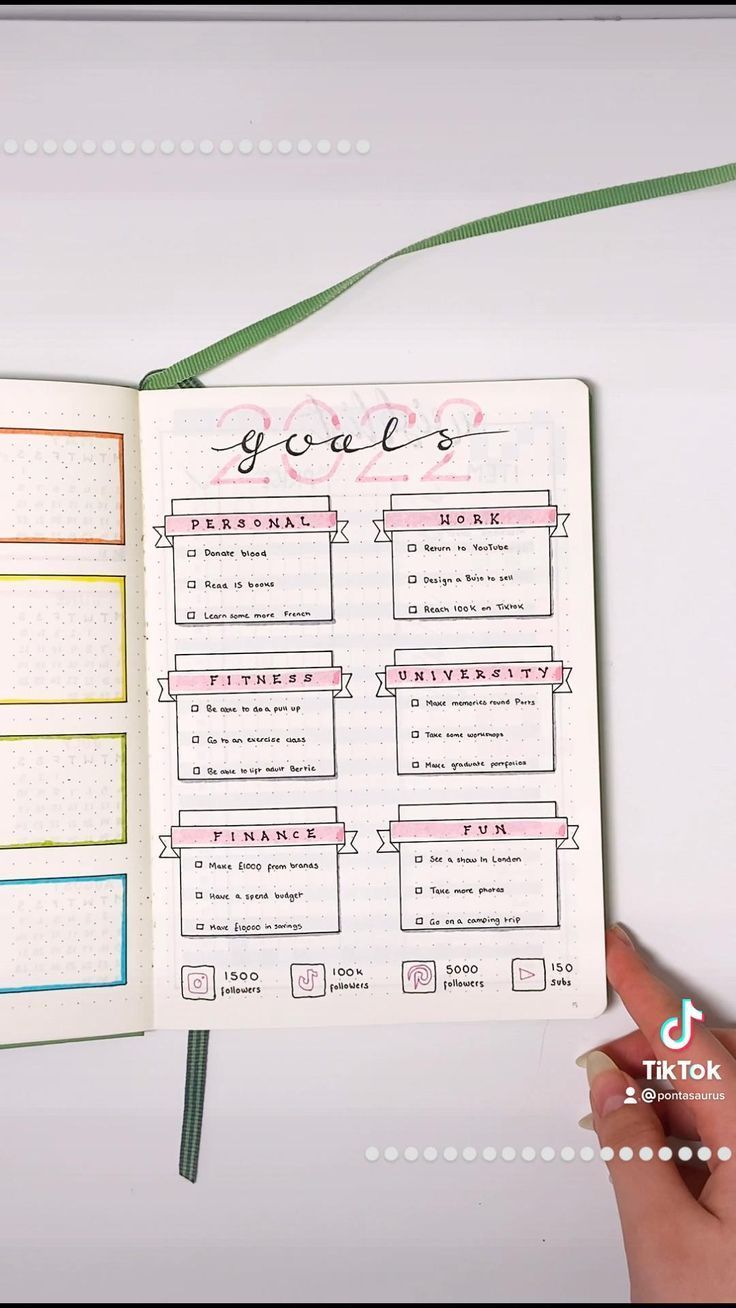 2022
goals
PERSONAL
Donate blood
Read 15 books
Learn some more French
WORK
Return to YouTube
Design a Bujo to sell
Reach 100k on Tiktok
FITNESS
Be able to do a pull up
Go to an exercise class
Be able to lift adult Bertie
UNIVERSITY
Make memories round Ports
Take some workshops
Make graduate portfolios
FINANCE
Make £1000 from brands
Have a spend budget
Have £10000 in savings
FUN
See a show in London
Take more photos
Go on a camping trip
1500
followers
100k
followers
5000
followers
150
subs
TikTok
@pontasaurus